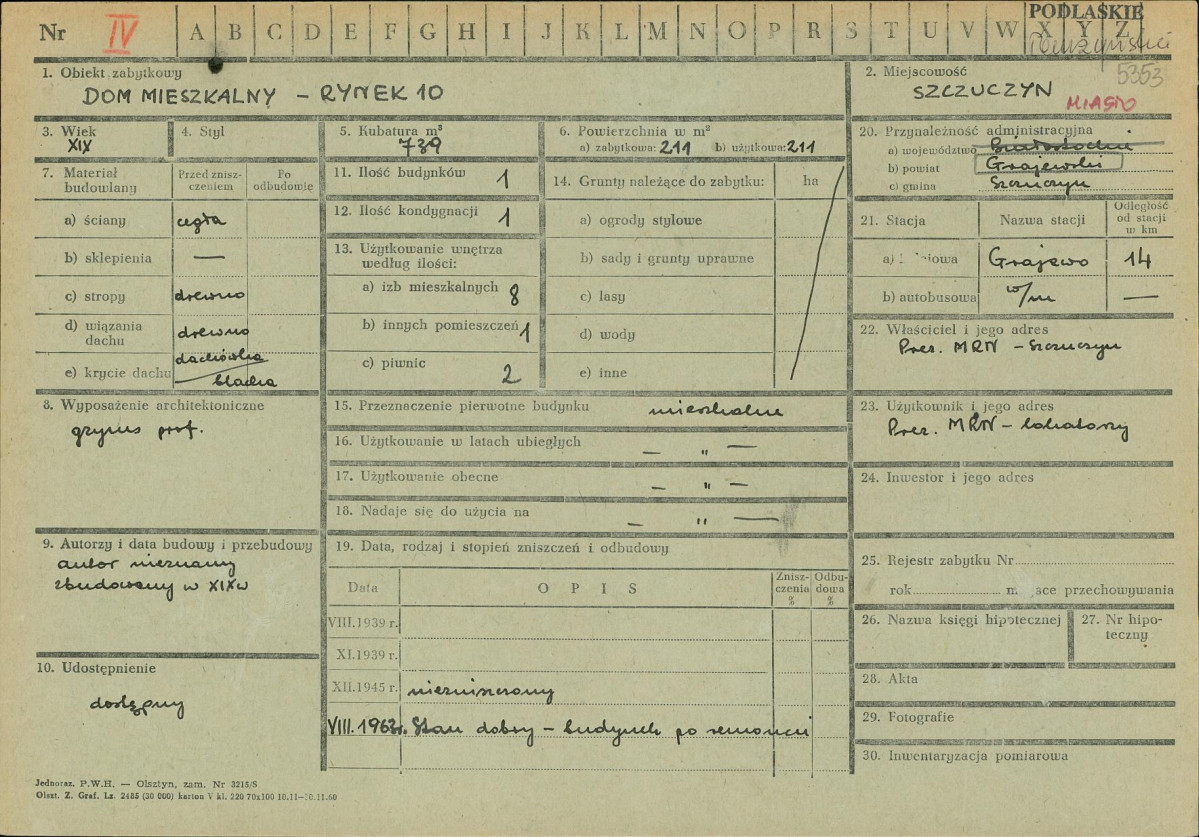 PODLASKIE
Nr IV A B C D E F G H I J K L M N O P R S T U V W X Y Z
5353
1. Obiekt zabytkowy
DOM MIESZKALNY – RYNEK 10
2. Miejscowość
SZCZUCZYN
MIASTO
3. Wiek
XIX
4. Styl
5. Kubatura m³
739
6. Powierzchnia w m²
a) zabytkowa: 211 b) użytkowa: 211
20. Przynależność administracyjna
a) województwo Białostockie
b) powiat Grajewski
c) gmina Szczuczyn
7. Materiał budowlany
Przed zniszczeniem
Po odbudowie
a) ściany cegła
b) sklepienia —
c) stropy drewno
d) wiązania dachu drewno
e) krycie dachu dachówka
blacha
11. Ilość budynków 1
12. Ilość kondygnacji 1
13. Użytkowanie wnętrza według ilości:
a) izb mieszkalnych 8
b) innych pomieszczeń 1
c) piwnic 2
14. Grunty należące do zabytku: ha
a) ogrody stylowe
b) sady i grunty uprawne
c) lasy
d) wody
e) inne
21. Stacja
Nazwa stacji
Odległość od stacji w km
a) Grajewo 14
b) autobusowa w/m —
22. Właściciel i jego adres
Prez. MRN – Szczuczyn
8. Wyposażenie architektoniczne
gzyms prof.
15. Przeznaczenie pierwotne budynku mieszkalne
16. Użytkowanie w latach ubiegłych — „ —
17. Użytkowanie obecne — „ —
18. Nadaje się do użycia na — „ —
23. Użytkownik i jego adres
Prez. MRN – lokatorzy
24. Inwestor i jego adres
9. Autorzy i data budowy i przebudowy
autor nieznany
zbudowany w XIX w
19. Data, rodzaj i stopień zniszczeń i odbudowy
Data
OPIS
Zniszczenia %
Odbudowa %
VIII.1939 r.
XI.1939 r.
XII.1945 r. niezniszczony
VIII.1963r. Stan dobry – budynek po remoncie
25. Rejestr zabytku Nr
rok m sce przechowywania
26. Nazwa księgi hipotecznej
27. Nr hipoteczny
10. Udostępnienie
dostępny
28. Akta
29. Fotografie
30. Inwentaryzacja pomiarowa
Jednoraz. P.W.H. — Olsztyn, zam. Nr 3215/S
Olszt. Z. Graf. Lz. 2485 (30 000) karton V kl. 220 70x100